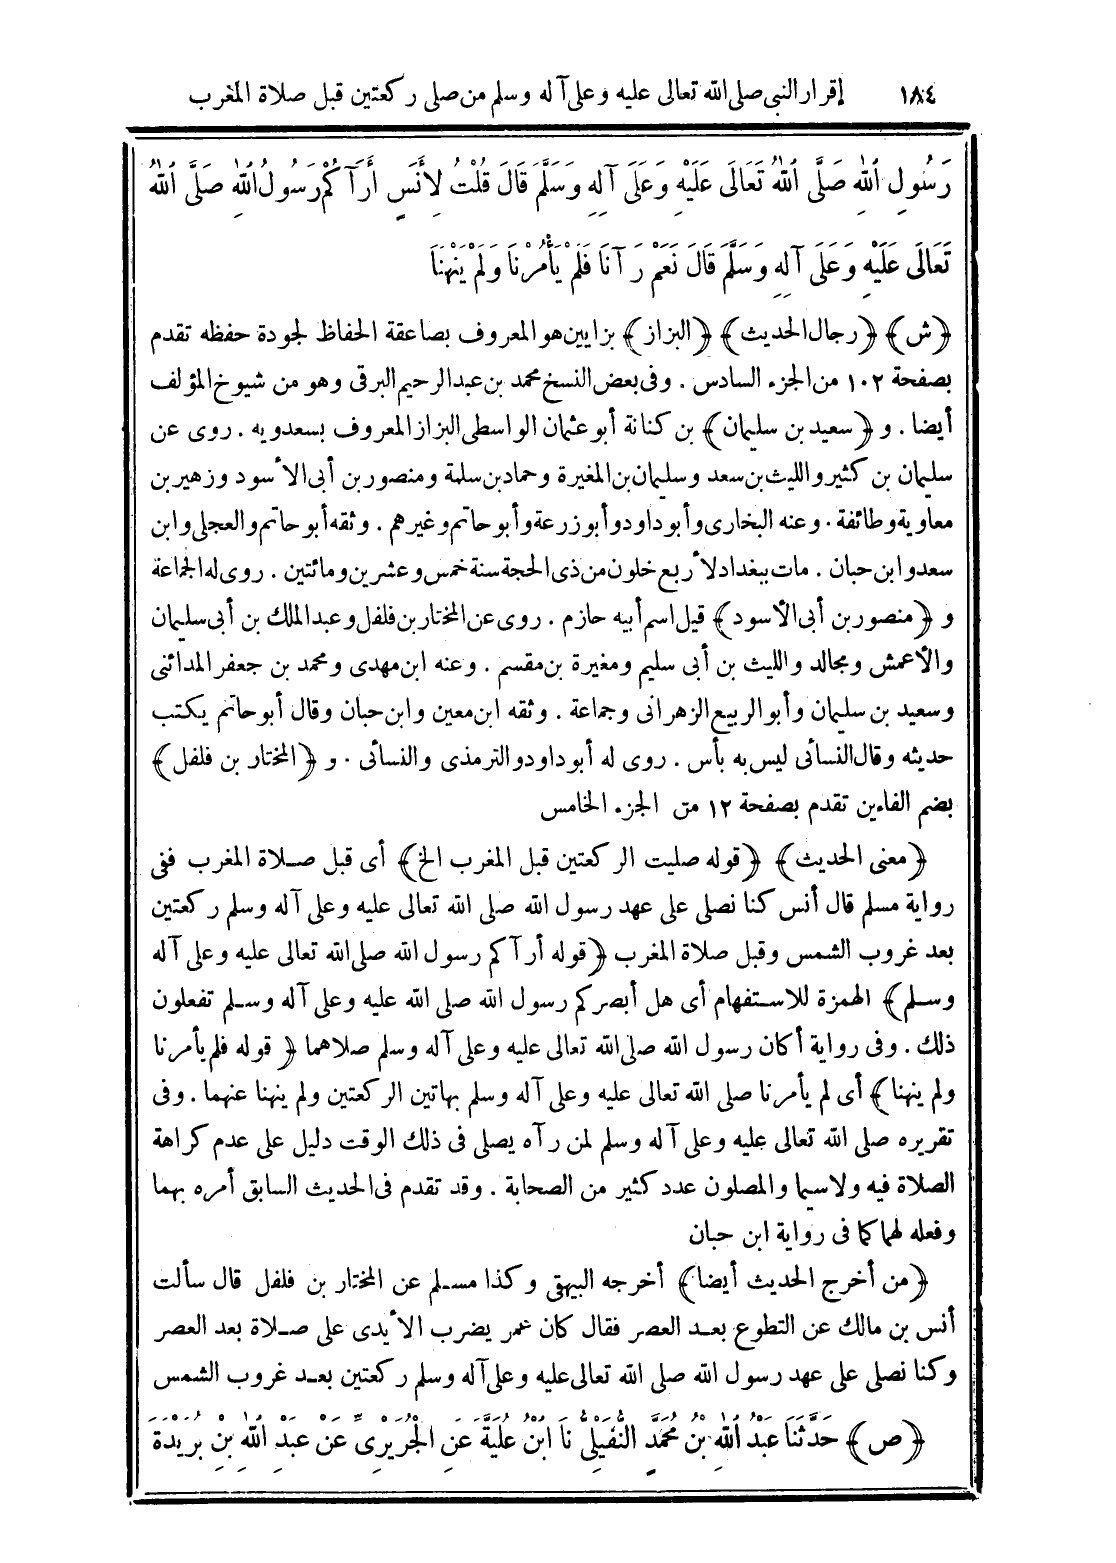 ١٨٤ إقرار النبي صلى الله تعالى عليه وعلى آله وسلم من صلى ركعتين قبل صلاة المغرب
رَسُولِ ٱللهِ صَلَّى ٱللهُ تَعَالَى عَلَيْهِ وَعَلَى آلِهِ وَسَلَّمَ قَالَ قُلْتُ لِأَنَسٍ أَرَآكُمْ رَسُولُ ٱللهِ صَلَّى ٱللهُ
تَعَالَى عَلَيْهِ وَعَلَى آلِهِ وَسَلَّمَ قَالَ نَعَمْ رَآنَا فَلَمْ يَأْمُرْنَا وَلَمْ يَنْهَنَا
﴿ش﴾ ﴿رجال الحديث﴾ ﴿البزاز﴾ بزايين هو المعروف بصاعقة الحفاظ لجودة حفظه تقدم
بصفحة ١٠٢ من الجزء السادس . وفى بعض النسخ محمد بن عبد الرحيم البرقى وهو من شيوخ المؤلف
أيضا . و ﴿سعيد بن سليمان﴾ بن كنانة أبو عثمان الواسطى البزاز المعروف بسعدويه . روى عن
سليمان بن كثير والليث بن سعد وسليمان بن المغيرة وحماد بن سلمة ومنصور بن أبى الأسود وزهير بن
معاوية وطائفة . وعنه البخارى وأبو داود وأبو زرعة وأبو حاتم وغيرهم . وثقه أبو حاتم والعجلى وابن
سعد وابن حبان . مات ببغداد لأربع خلون من ذى الحجة سنة خمس وعشرين ومائتين . روى له الجماعة
و ﴿منصور بن أبى الأسود﴾ قيل اسم أبيه حازم . روى عن المختار بن فلفل وعبد الملك بن أبى سليمان
والأعمش ومجالد والليث بن أبى سليم ومغيرة بن مقسم . وعنه ابن مهدى ومحمد بن جعفر المدائنى
وسعيد بن سليمان وأبو الربيع الزهرانى وجماعة . وثقه ابن معين وابن حبان وقال أبو حاتم يكتب
حديثه وقال النسائى ليس به بأس . روى له أبو داود والترمذى والنسائى . و ﴿المختار بن فلفل﴾
بضم الفاءين تقدم بصفحة ١٢ من الجزء الخامس
﴿معنى الحديث﴾ ﴿قوله صليت الركعتين قبل المغرب الخ﴾ أى قبل صلاة المغرب ففى
رواية مسلم قال أنس كنا نصلى على عهد رسول الله صلى الله تعالى عليه وعلى آله وسلم ركعتين
بعد غروب الشمس وقبل صلاة المغرب ﴿قوله أرآكم رسول الله صلى الله تعالى عليه وعلى آله
وسلم﴾ الهمزة للاستفهام أى هل أبصركم رسول الله صلى الله عليه وعلى آله وسلم تفعلون
ذلك . وفى رواية أكان رسول الله صلى الله تعالى عليه وعلى آله وسلم صلاهما ﴿قوله فلم يأمرنا
ولم ينهنا﴾ أى لم يأمرنا صلى الله تعالى عليه وعلى آله وسلم بهاتين الركعتين ولم ينهنا عنهما . وفى
تقريره صلى الله تعالى عليه وعلى آله وسلم لمن رآه يصلى فى ذلك الوقت دليل على عدم كراهة
الصلاة فيه ولاسيما والمصلون عدد كثير من الصحابة . وقد تقدم فى الحديث السابق أمره بهما
وفعله لهما كما فى رواية ابن حبان
﴿من أخرج الحديث أيضا﴾ أخرجه البيهقى وكذا مسلم عن المختار بن فلفل قال سألت
أنس بن مالك عن التطوع بعد العصر فقال كان عمر يضرب الأيدى على صلاة بعد العصر
وكنا نصلى على عهد رسول الله صلى الله تعالى عليه وعلى آله وسلم ركعتين بعد غروب الشمس
﴿ص﴾ حَدَّثَنَا عَبْدُ ٱللهِ بْنُ مُحَمَّدٍ النُّفَيْلِىُّ نَا ابْنُ عُلَيَّةَ عَنِ الْجُرَيْرِىِّ عَنْ عَبْدِ ٱللهِ بْنِ بُرَيْدَةَ